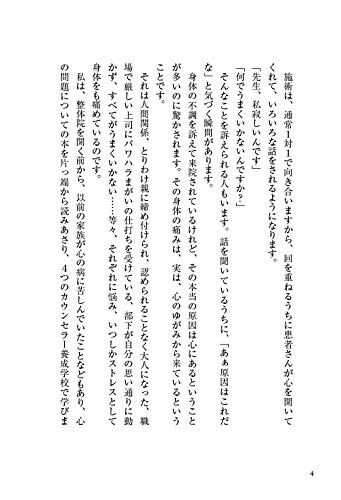 施術は、通常1対1で向き合いますから、回を重ねるうちに患者さんが心を開いて
くれて、いろいろな話をされるようになります。
「先生、私寂しいんです」
「何でうまくいかないんですか？」
　そんなことを訴えられる人もいます。話を聞いているうちに、「あぁ原因はこれだ
な」と気づく瞬間があります。
　身体の不調を訴えて来院されているけれど、その本当の原因は心にあるということ
が多いのに驚かされます。その身体の痛みは、実は、心のゆがみから来ているという
ことです。
　それは人間関係、とりわけ親に締め付けられ、認められることなく大人になった、職
場で厳しい上司にパワハラまがいの仕打ちを受けている、部下が自分の思い通りに動
かず、すべてがうまくいかない……等々、それぞれに悩み、いつしかストレスとして
身体をも痛めているのです。
　私は、整体院を開く前から、以前の家族が心の病に苦しんでいたことなどもあり、心
の問題についての本を片っ端から読みあさり、4つのカウンセラー養成学校で学びま
4